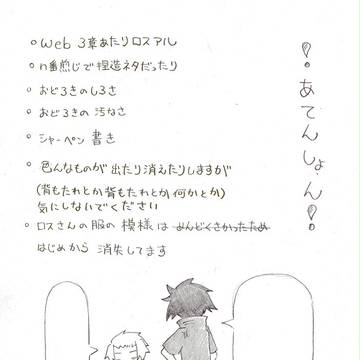 ！あてんしょん！
○web 3章あたりロスアル
○n番煎じで捏造ネタだったり
○おどろきのしろさ
○おどろきの汚なさ
○シャーペン書き
○色んなものが出たり消えたりしますが
(背もたれとか背もたれとか何かとか)
気にしないでください
○ロスさんの服の模様はめんどくさかったため
はじめから消失してます